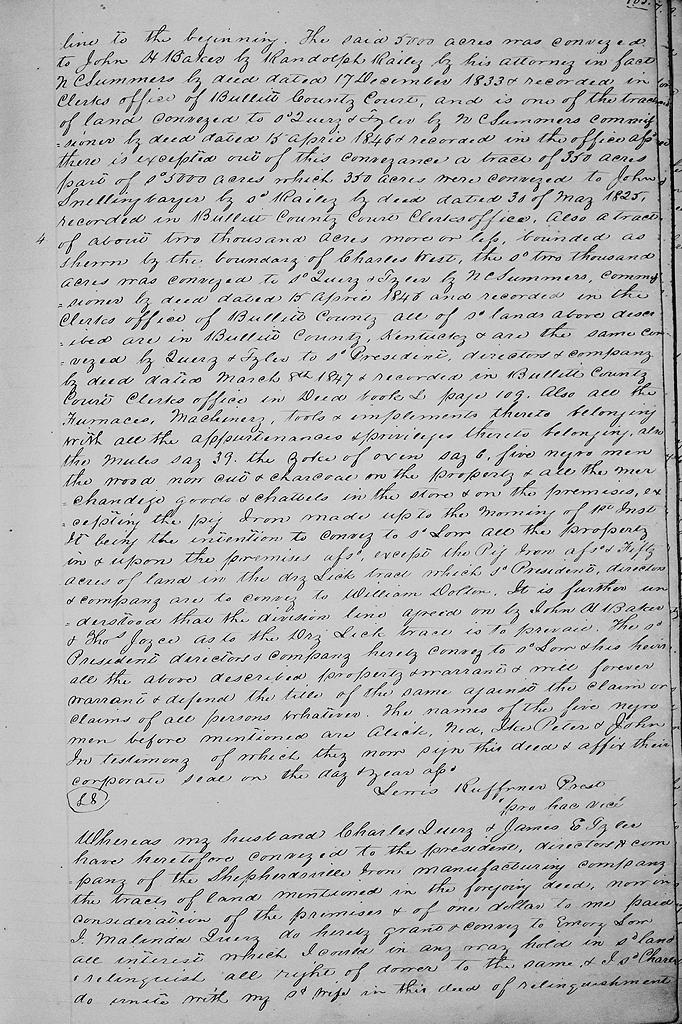 103.
line to the beginning. The said 5000 acres was conveyed
to John H Baker by Randolph Railey by his attorney in fact
N C Summers by deed dated 17 December 1833 & recorded in
Clerks office of Bullitt County Court, and is one of the tracts
of land conveyed to sd Query & Tyler by N C Summers commis
=sioner by deed dated 15 April 1846 & recorded in the office afsd
there is excepted out of this conveyance a tract of 350 acres
part of sd 5000 acres which 350 acres were conveyed to John
Snellingbarger by sd Railey by deed dated 30 of May 1825,
recorded in Bullitt County Court Clerks office, Also a tract
4 of about two thousand acres more or less, bounded as
shewn by the boundary of Charles West, the sd two thousand
acres was conveyed to sd Query & Tyler by N C Summers, commis
=sioner by deed dated 15 April 1846 and recorded in the
Clerks office of Bullitt County all of sd lands above descr
=ibed are in Bullitt County, Kentucky & are the same con
=veyed by Query & Tyler to sd President, directors & company
by deed dated March 8th 1847 & recorded in Bullitt County
Court Clerks office in Deed book L page 109. Also all the
Furnaces, Machinery, tools & implements thereto belonging
with all the appurtenances & privileges thereto belonging, also
the Mules say 39. the yoke of oxen say 6, five negro men
the wood now cut & charcoal on the property & all the mer
=chandize goods & chattels in the store & on the premises, ex
=cepting the pig Iron made up to the morning of 1st Inst
It being the intention to convey to sd Low all the property
in & upon the premises afsd, except the Pig Iron afsd & Fifty
acres of land in the dry Lick tract which sd President, directors
& company are to convey to William Dolton. It is further un
=derstood that the division line agreed on by John H Baker
& Thos Joyce as to the Dry Lick tract is to prevail. The sd
President directors & company hereby convey to sd Low & his heirs
all the above described property & warrant & will forever
warrant & defend the title of the same against the claim or
claims of all persons whatever. The names of the five negro
men before mentioned are Alick, Ned, Ike Peter & John
In testimony of which they now sign this deed & affix their
corporate seal on the day & year afsd
LS Lewis Ruffner Prest
pro hac vice
Whereas my husband Charles Query & James E Tyler
have heretofore conveyed to the president, directors & com
=pany of the Shepherdsville Iron manufacturing company
the tracts of land mentioned in the forgoing deed, now in
consideration of the premises & of one dollar to me paid
I. Malinda Query do hereby grant & convey to Emory Low
all interest which I could in any way hold in sd land
& relinquish all right of dower to the same & I sd Charles
do unite with my sd wife in this deed of relinquishment